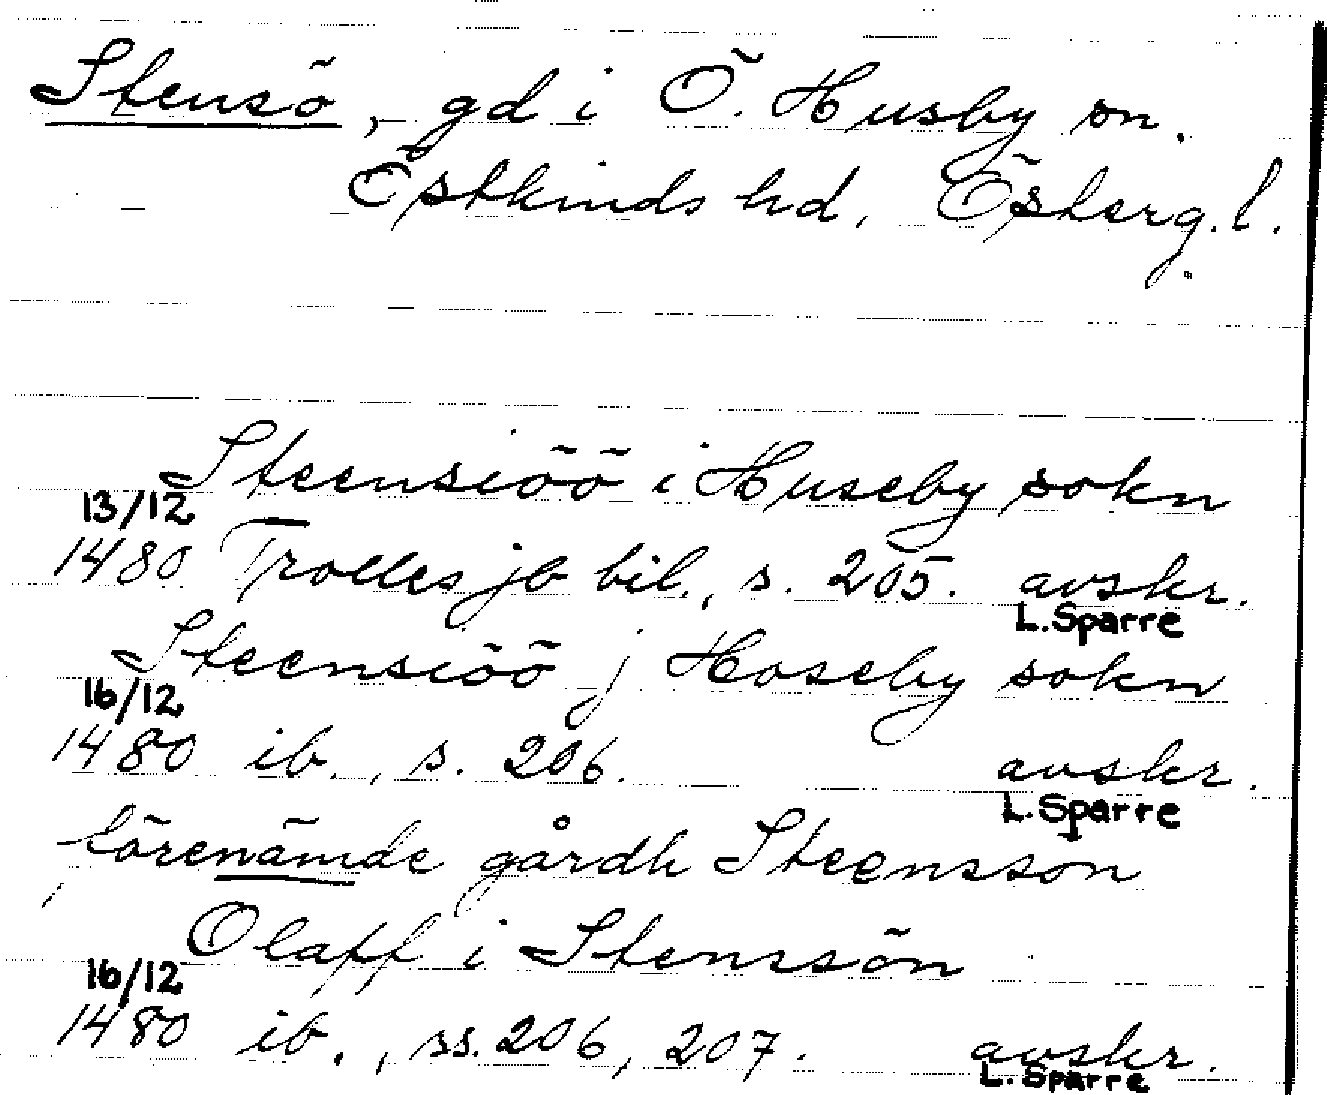 Stensö, gd i Ö. Husby sn.
Östkinds hd, Österg. l.
Steensiöö i Huseby sokn
13/12
1480 Trolles jb bil., s. 205. avskr.
L. Sparre
Steensiöö j Hoseby sokn
16/12
1480 ib., s. 206. avskr.
L. Sparre
förenämde gårdh Steensson
Olaff i Stenssön
16/12
1480 ib., ss. 206, 207. avskr.
L. Sparre